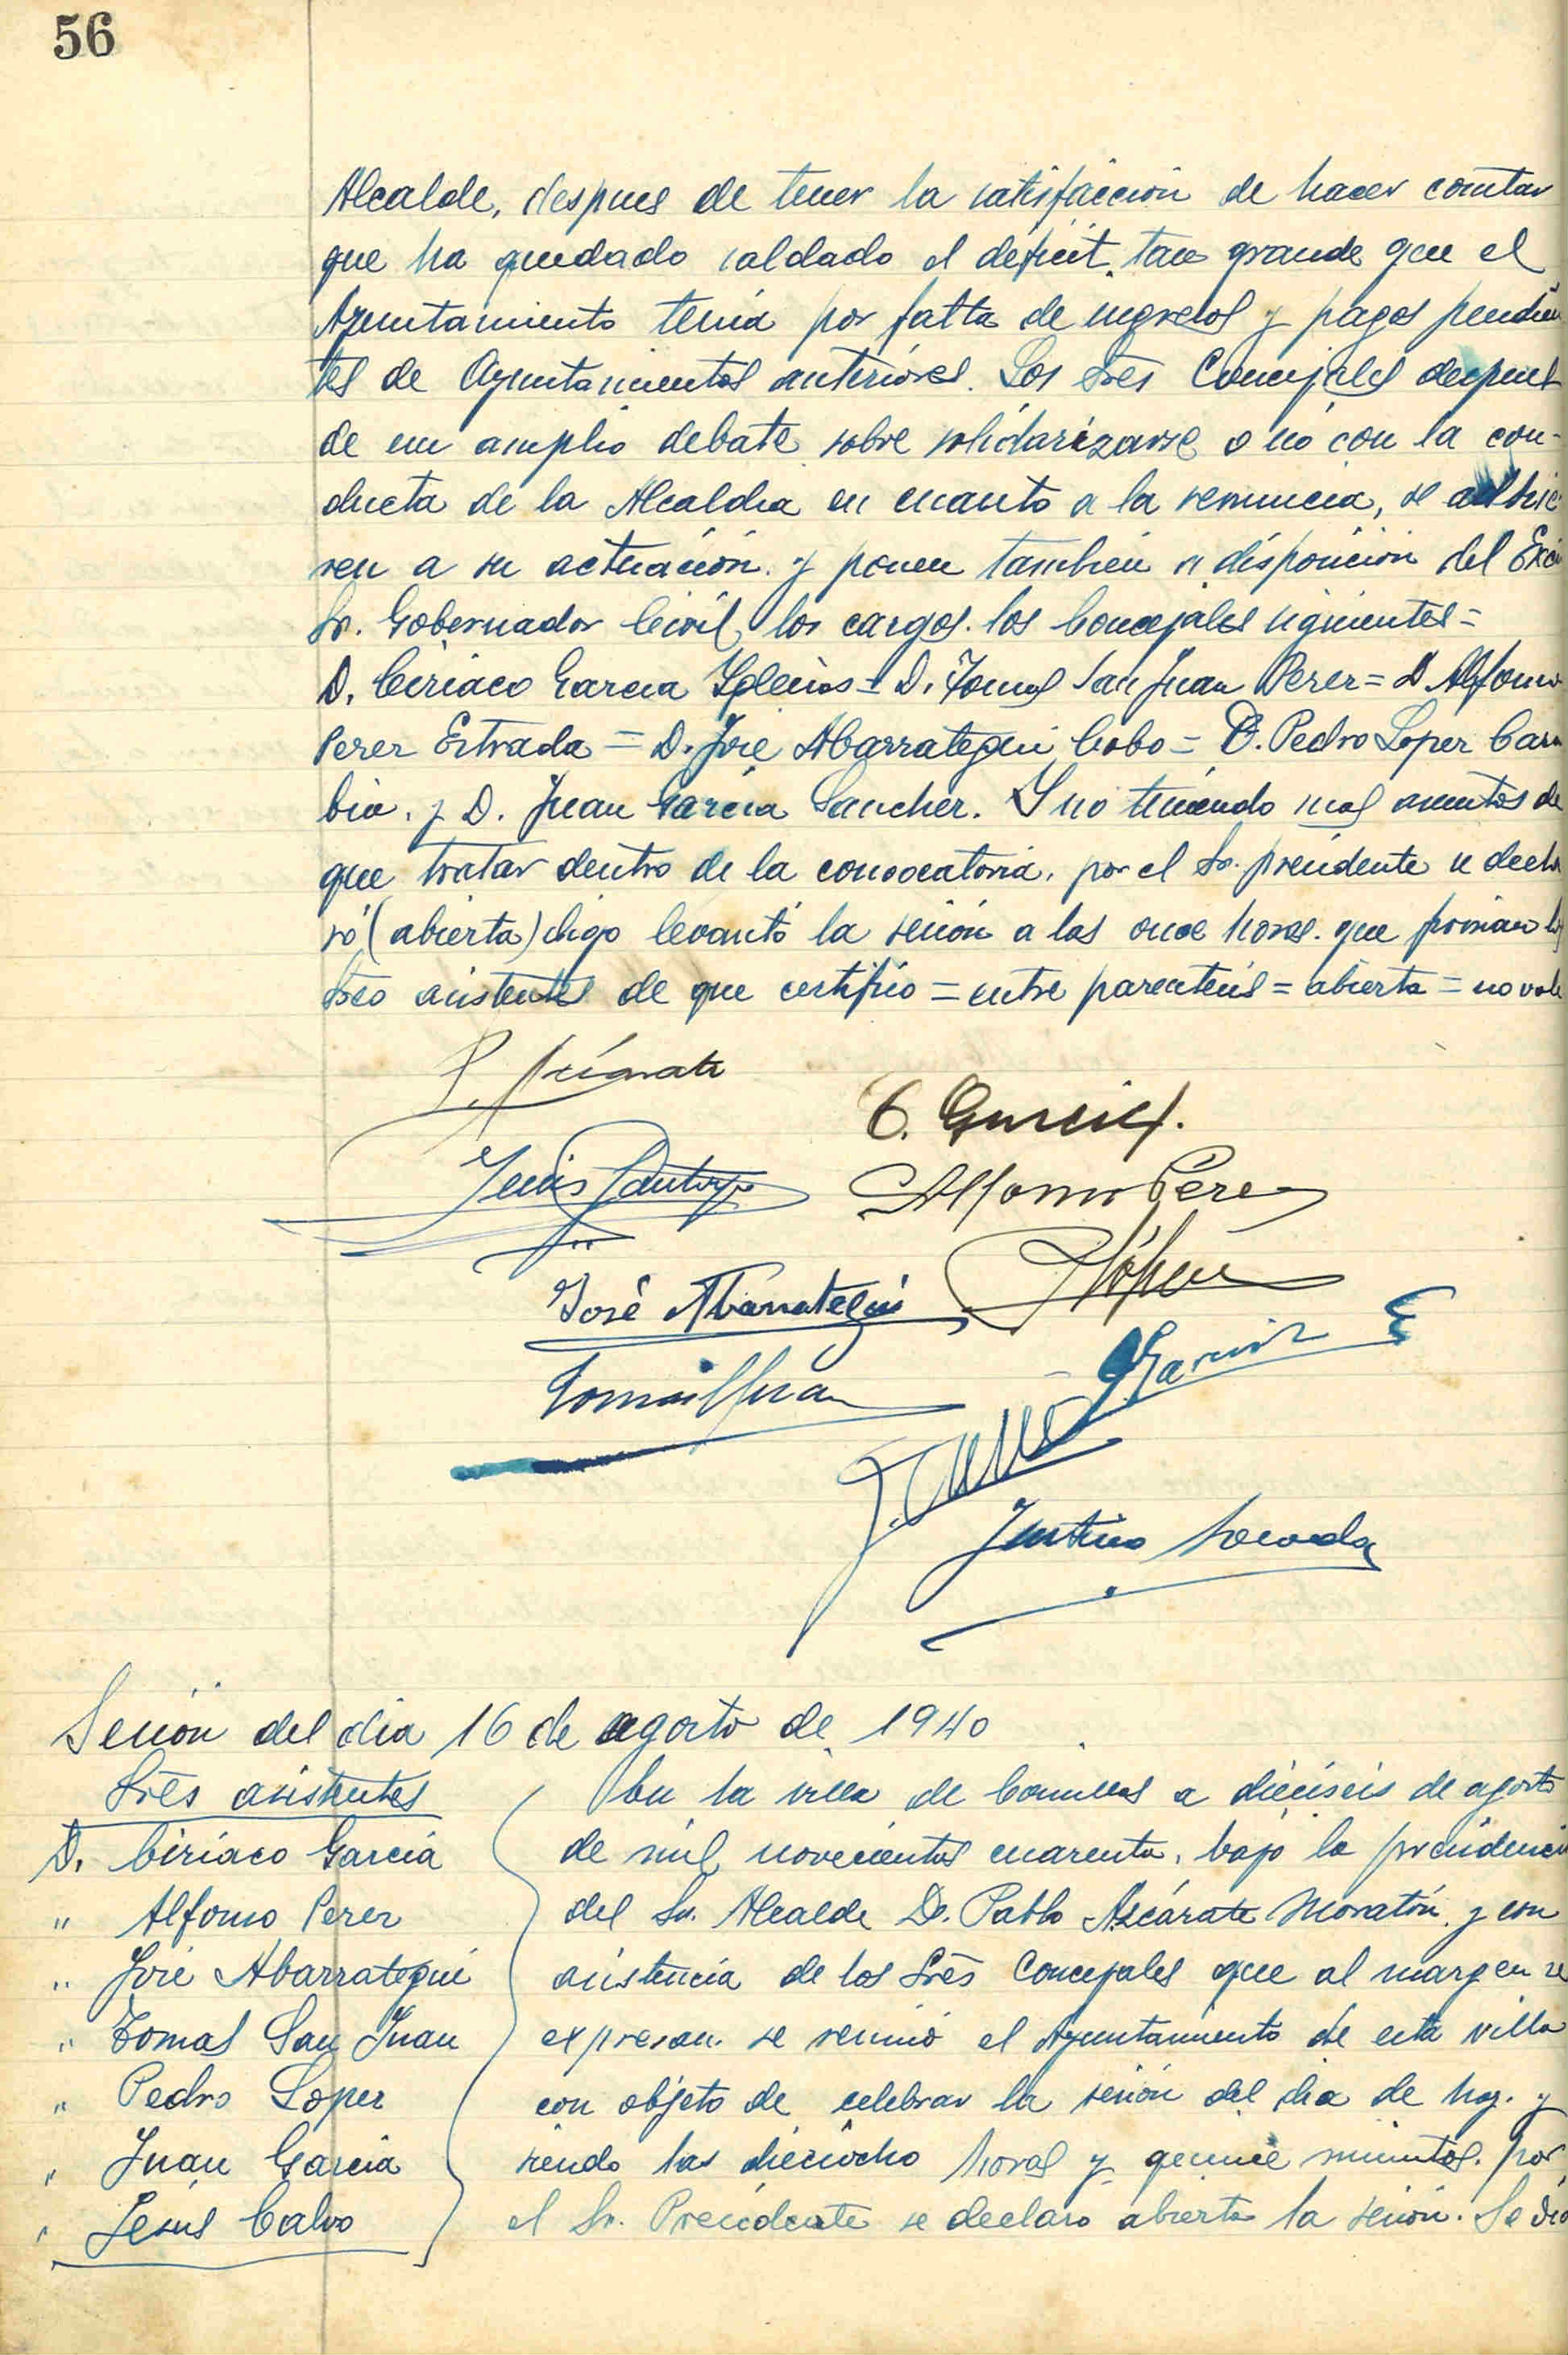 56
Alcalde, despues de tener la satisfaccion de hacer constar
que ha quedado saldado el deficit tan grande que el
Ayuntamiento tenia por falta de ingresos y pagos pendien
tes de Ayuntamientos anteriores. Los Sres Concejales despues
de un amplio debate sobre solidarizarse o no con la con-
ducta de la Alcaldia en cuanto a la renuncia, se adhie
ren a su actuación y ponen tambien a disposicion del Excmo
Sr. Gobernador Civil los cargos los Concejales siguientes =
D. Ciriaco Garcia Iglesias = D. Tomas San Juan Perez = D Alfonso
Perez Estrada = D. José Abarrategui Cobo = D. Pedro Lopez Cara
bia. y D. Juan Garcia Sanchez. Y no teniendo mas asuntos de
que tratar dentro de la convocatoria, por el Sr. presidente se decla
ró (abierta) digo levantó la sesión a las once horas que firman los
Sres asistentes de que certifico = entre parentesis = abierta = no vale
C. Garcia.
Alfonso Pérez
José Abarrategui
P López
Tomas S Juan
Juan Garcia
Justino
Sesión del dia 16 de agosto de 1940
Sres asistentes
D. Ciriaco Garcia
" Alfonso Perez
" José Abarrategui
" Tomas San Juan
" Pedro Lopez
" Juan Garcia
" Jesús Calvo
En la villa de Comillas a dieciseis de agosto
de mil novecientos cuarenta, bajo la presidencia
del Sr. Alcalde D. Pablo Azcárate Moratón y con
asistencia de los Sres Concejales que al margen se
expresan se reunió el Ayuntamiento de esta villa
con objeto de celebrar la sesión del dia de hoy. y
siendo las dieciocho horas y quince minutos. por
el Sr. Presidente se declaro abierta la sesión. Se dió